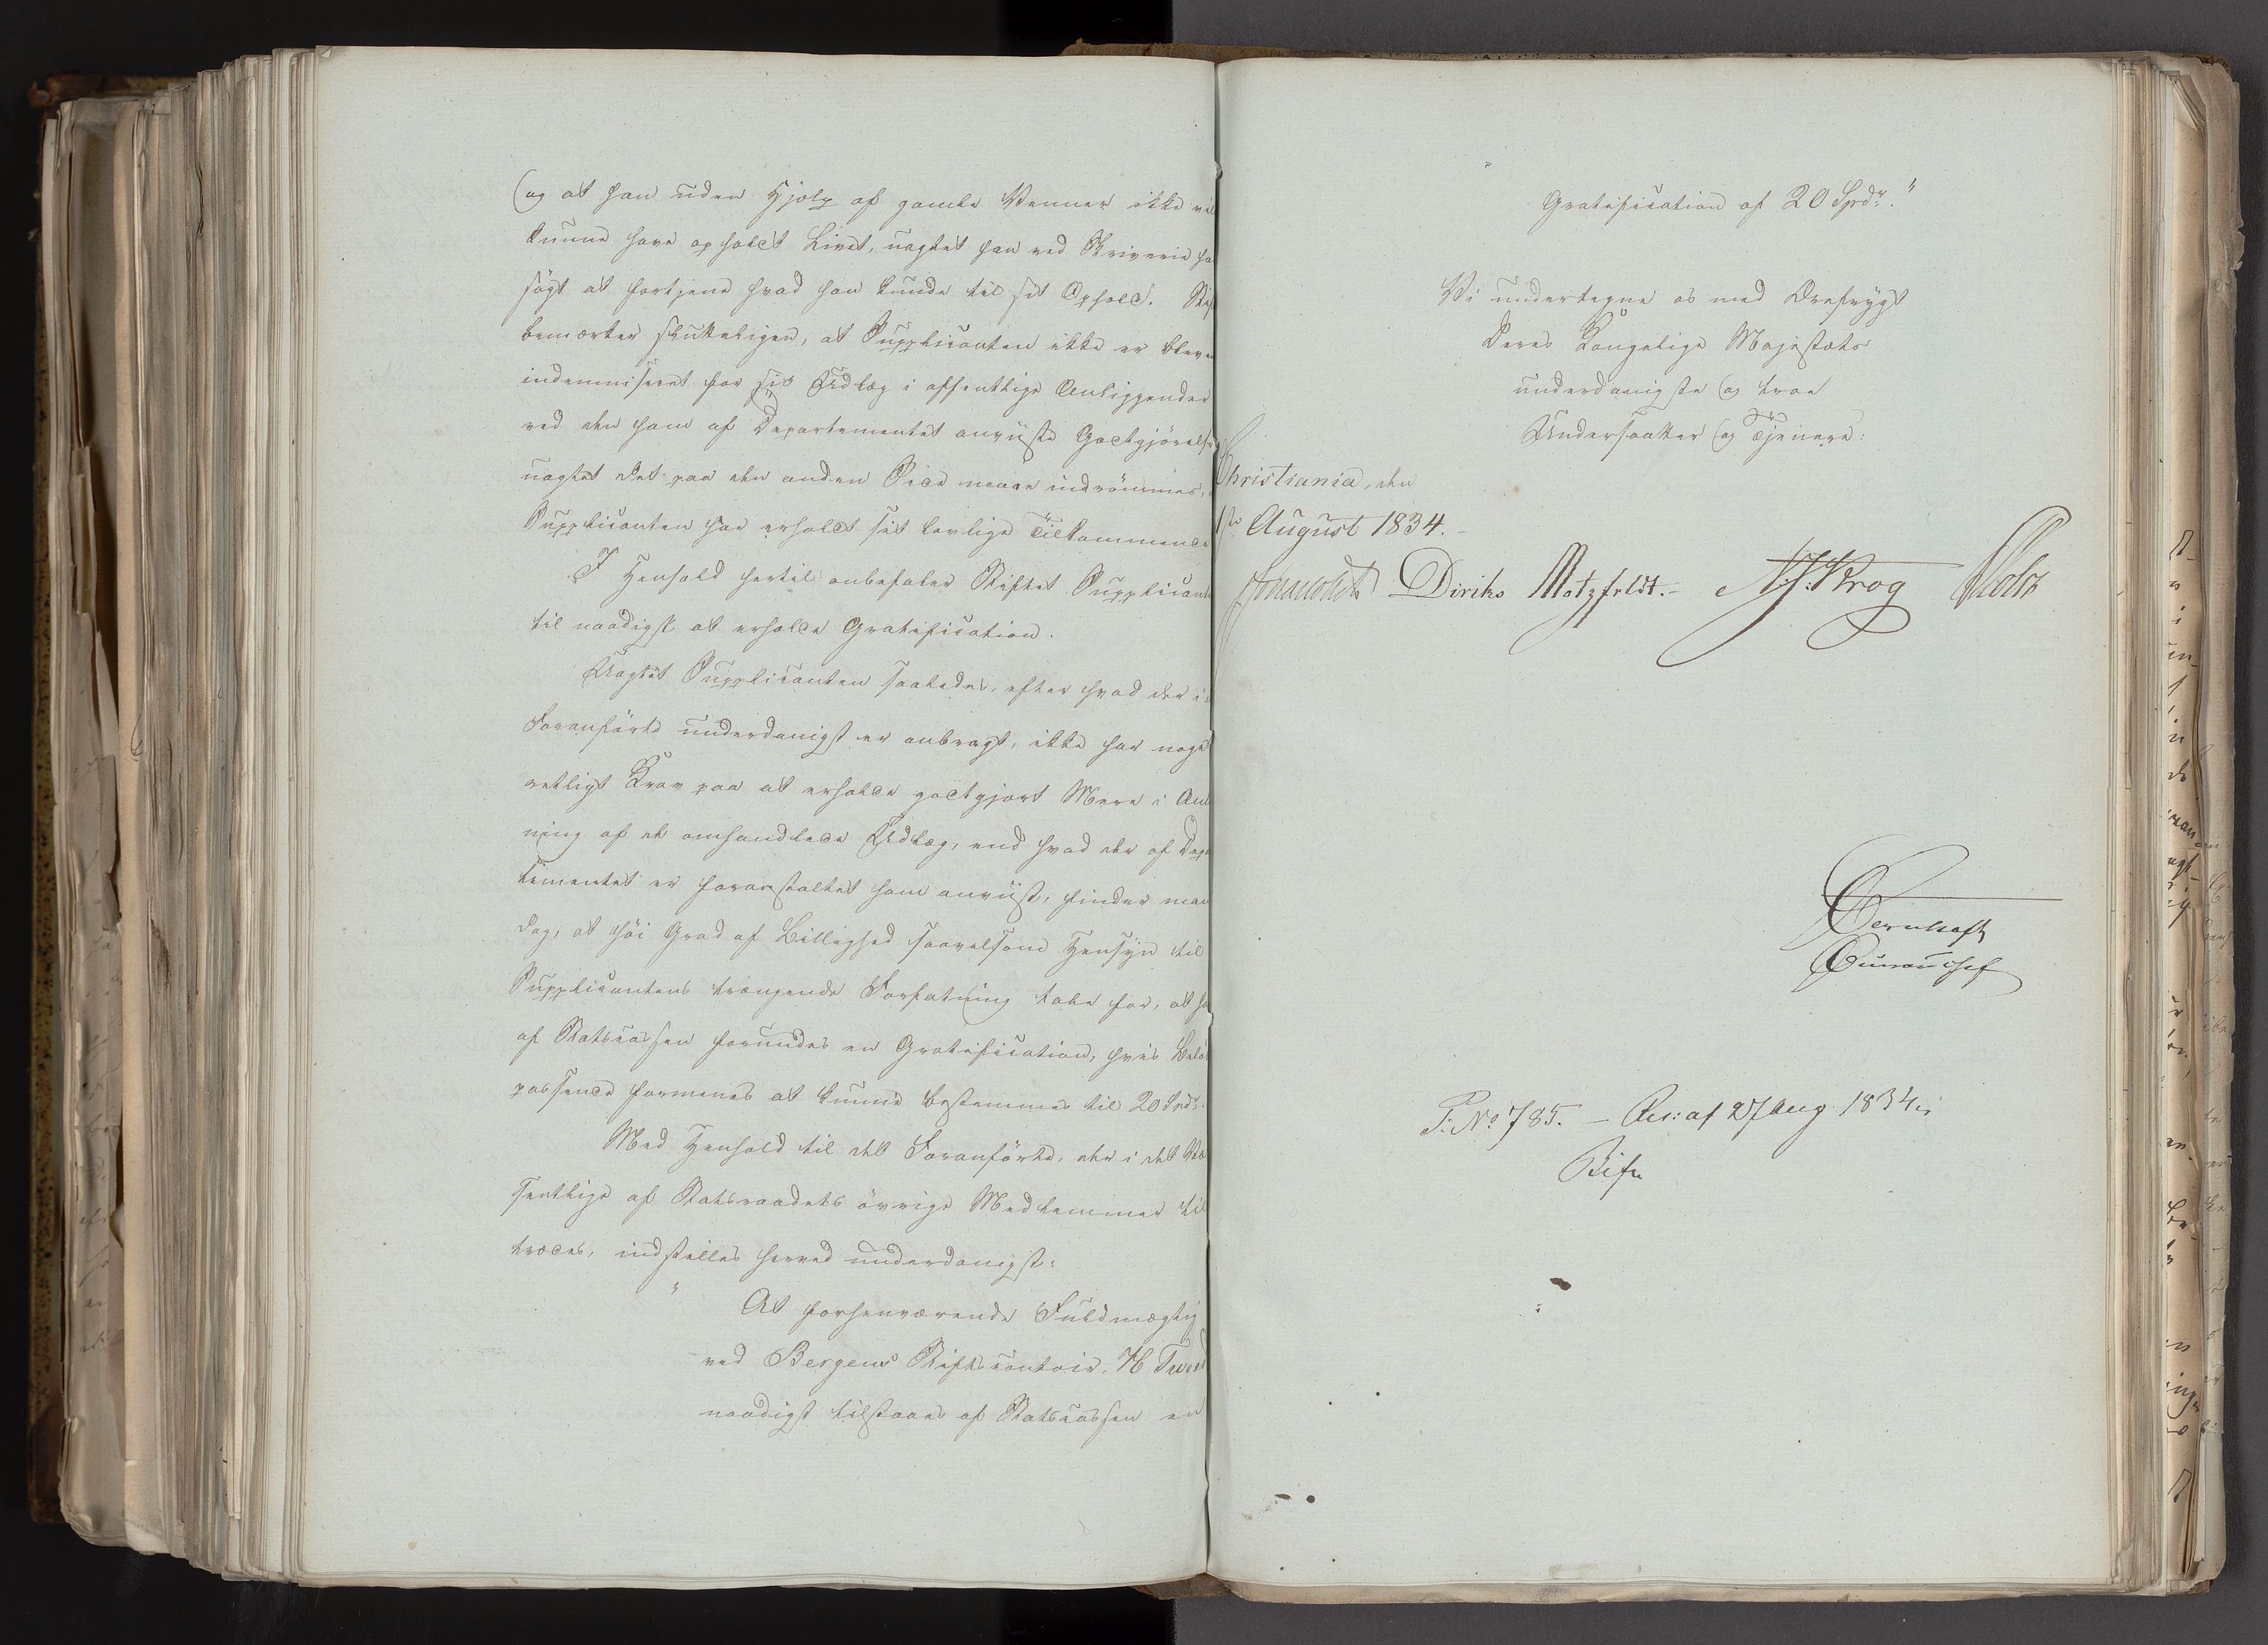 og at han uden Hjelp af gamle Venner ikke vil
kunne have opholdt Livet, uagtet han ved Skriverie ha
søgt at fortjene hvad han kunde til sit Ophold. Stif
bemærker sluttelligen, at Supplicanten ikke er bleven
indemniseret for sit Udlæg i offentlige Anliggender
ved den ham af Departementet anviiste Godtgjørelse
uagtet det paa den anden Side maae indrømmes,
Supplicanten har erholdt sit lovlige Tilkommende
I Henhold hertil anbefaler Stiftet Supplicant
til naadigst at erholde Gratification.
Uagtet Supplicanten saaledes, efter hvad der i
Foranførte underdanigst er anbragt, ikke har noget
retligt Krav paa at erholde godtgjort Mere i An
ning af de omhandlede Udlæg, end hvad der af Depa
tementet er foranstaltet ham anviist, finder man
dog, at høi Grad af Billighed saavelsom Hensyn til
Supplicantens trængende Forfatning tale for, at ha
af Statscassen forundes en Gratification, hvis Belø
passende formenes at kunne bestemmes til 20 Spdr.
Med Henhold til det Foranførte, der i det Væ
sentlige af Statsraadets øvrige Medlemmer til
trædes, indstilles herved underdanigst:
" At forhenværende Fuldmægtig
ved Bergens Stiftscontoir, H Tweed
naadigst tilstaaes af Statscassen en
Gratification af 20 Spdr."
Vi undertegne os med Ærefrygt
Deres Kongelige Majestæts
underdanigste og troe
Undersaatter og Tjenere:
Christiania, den
1ste August 1834.
Diriks Motzfeldt. - Krog
Bureauchef
P: No 785. - Res: af 27 Aug 1834